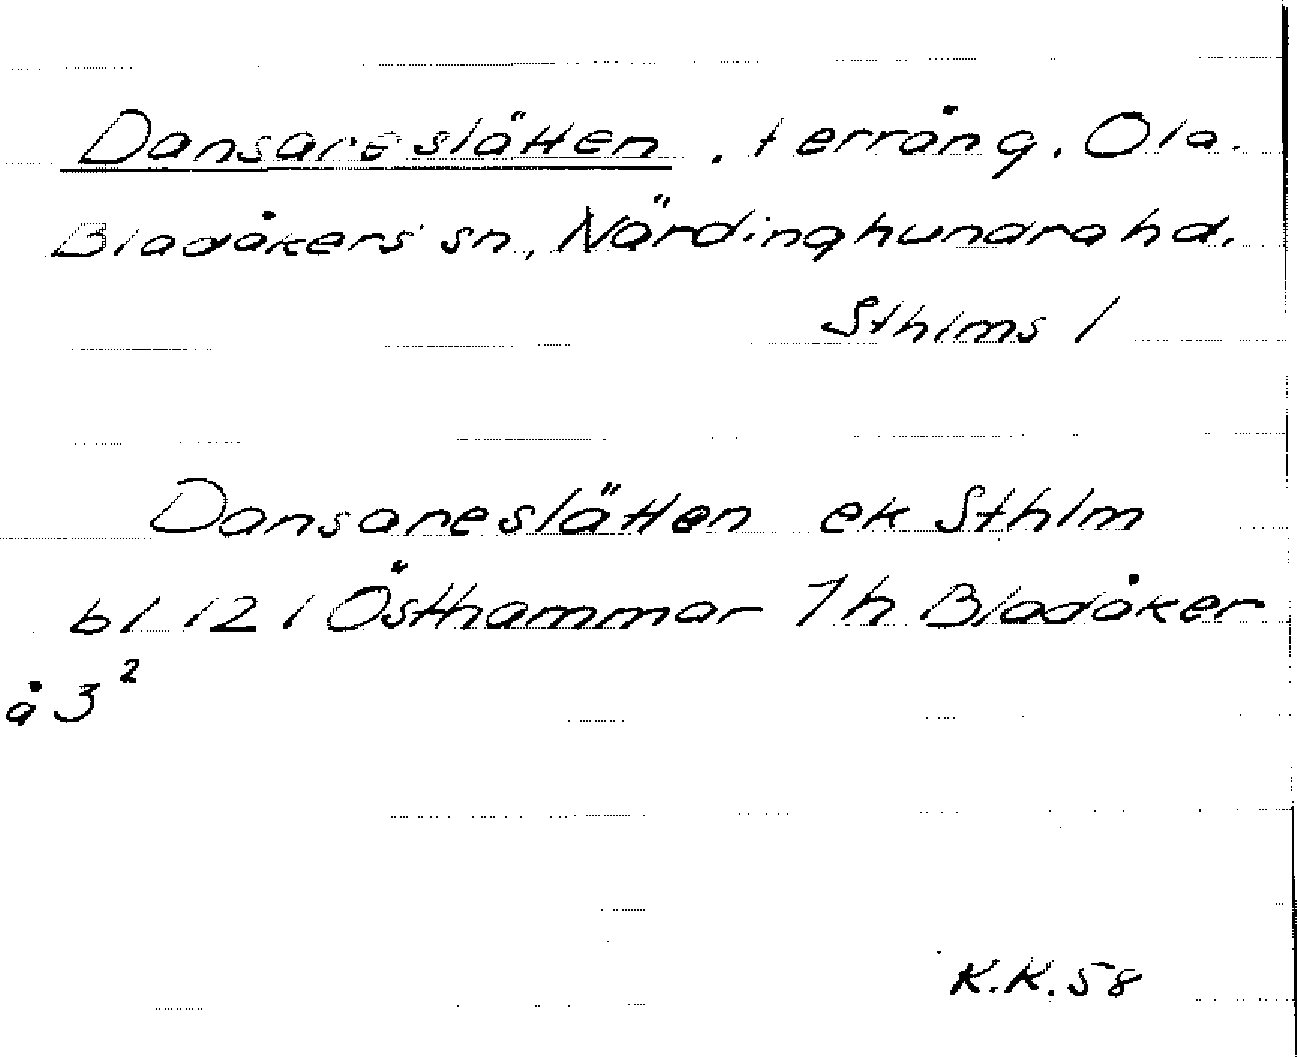 Dansareslätten, terräng, Öla.
Bladåkers sn, Närdinghundra hd.
Sthlms l
Dansareslätten ek Sthlm
bl 121 Östhammar 7h Bladåker
å 3²
K.K. 58